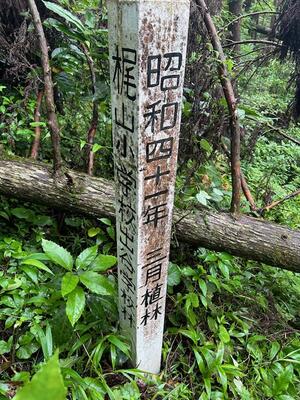 昭和四十一年三月植林
梶山小学校学校林